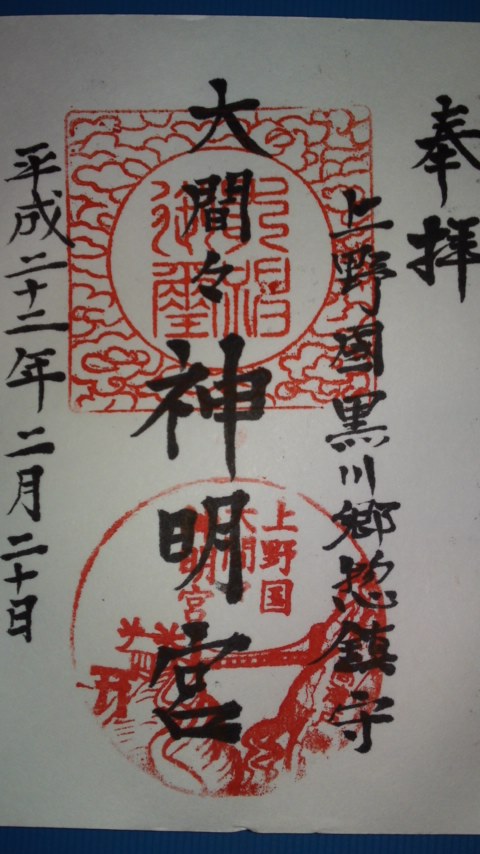 奉拝
上野国黒川郷惣鎮守
大間々神明宮
上野国
大間々
神明宮
平成二十二年二月二十日